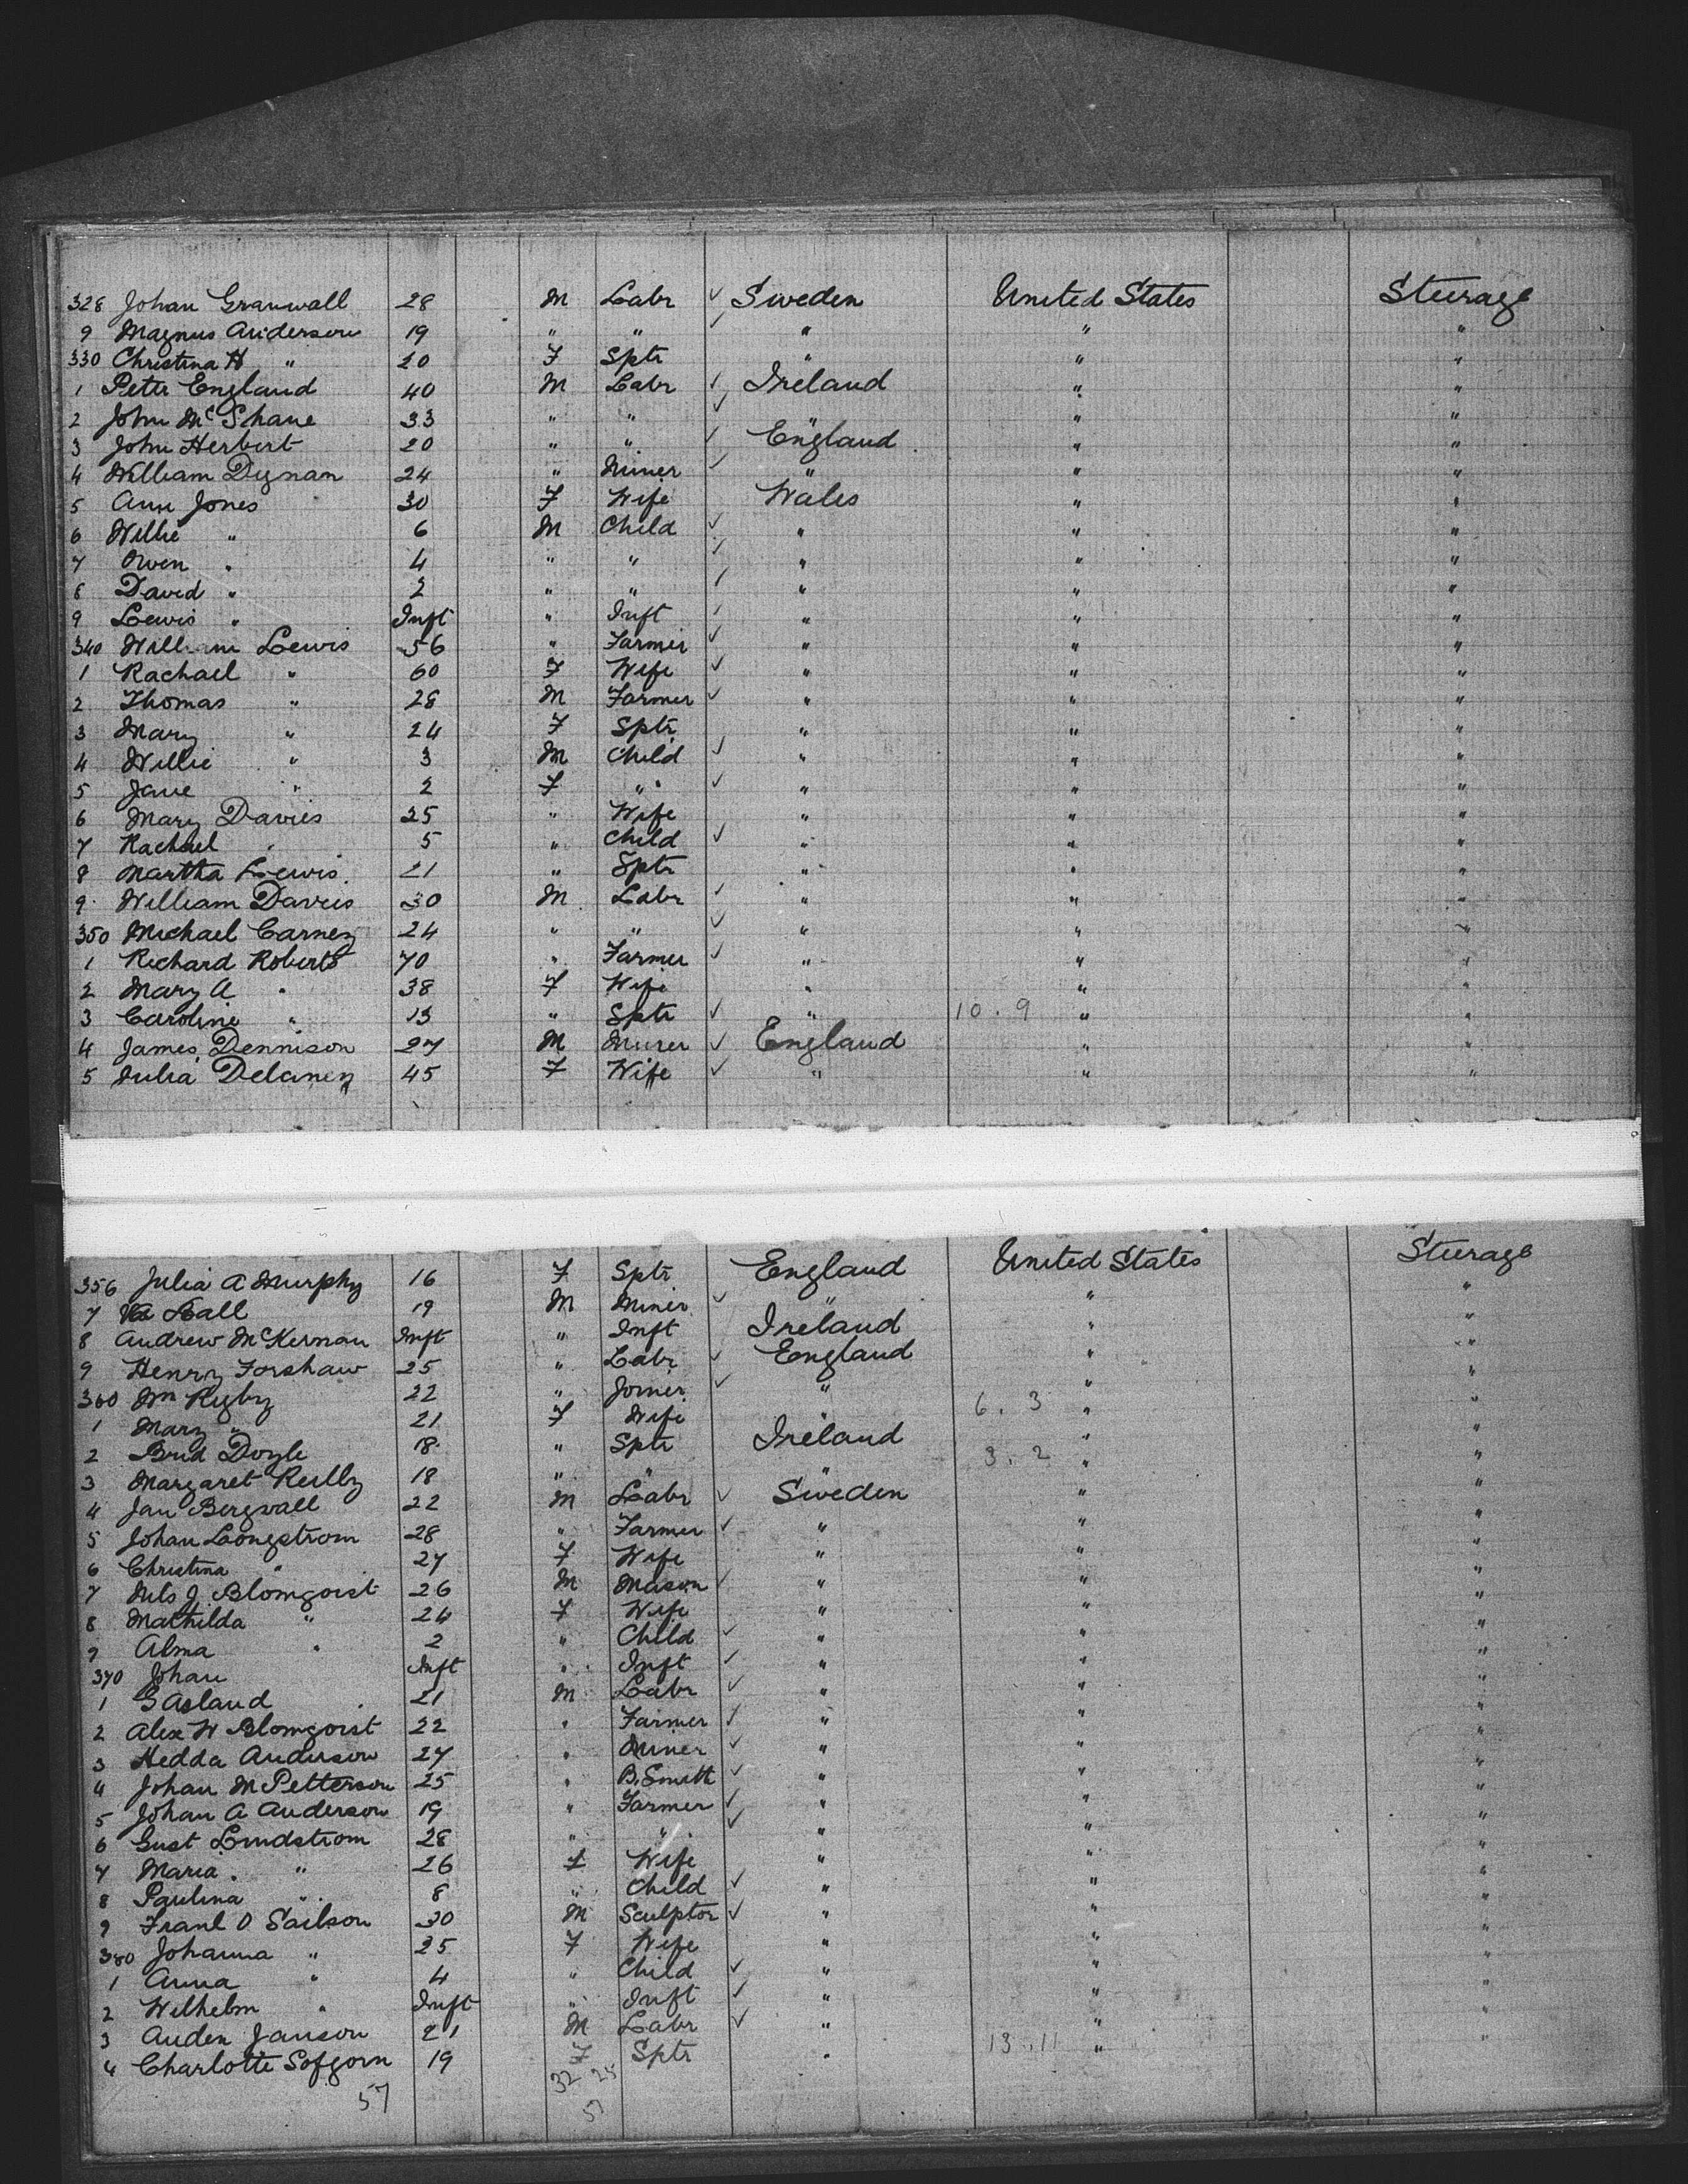 328 Johan Granwall 28 M Labr ✓ Sweden United States Steerage
9 Magnus Anderson 19 " " ✓ " " "
330 Christina H " 20 F Sptr " " "
1 Peter England 40 M Labr ✓ Ireland " "
2 John McShane 33 " " ✓ " " "
3 John Herbert 20 " " ✓ England " "
4 William Dignan 24 " Miner ✓ " " "
5 Ann Jones 30 F Wife Wales " "
6 Willie " 6 M Child ✓ " " "
7 Owen " 4 " " ✓ " " "
8 David " 2 " " ✓ " " "
9 Lewis " Inft " Inft ✓ " " "
340 William Lewis 56 " Farmer ✓ " " "
1 Rachael " 60 F Wife ✓ " " "
2 Thomas " 28 M Farmer ✓ " " "
3 Mary " 24 F Sptr " " "
4 Willie " 3 M Child ✓ " " "
5 Jane " 2 F " ✓ " " "
6 Mary Davies 25 " Wife " " "
7 Rachael " 5 " Child ✓ " " "
8 Martha Lewis 21 " Sptr " " "
9 William Davies 30 M Labr ✓ " " "
350 Michael Carney 24 " " ✓ " " "
1 Richard Roberts 70 " Farmer ✓ " " "
2 Mary A " 38 F Wife " " "
3 Caroline " 13 " Sptr ✓ " 10.9 " "
4 James Dennison 27 M Miner ✓ England " "
5 Julia Delaney 45 F Wife ✓ " " "
356 Julia A Murphy 16 F Sptr England United States Steerage
7 Ball 19 M Miner ✓ " " "
8 Andrew McKernan Inft " Inft Ireland " "
9 Henry Forshaw 25 " Labr ✓ England " "
360 Wm Rigby 22 " Joiner ✓ " " "
1 Mary " 21 F Wife " 6.3 " "
2 Brid Doyle 18 " Sptr Ireland " "
3 Margaret Reilly 18 " " " 3.2 " "
4 Jan Bergvall 22 M Labr ✓ Sweden " "
5 Johan Longstrom 28 " Farmer ✓ " " "
6 Christina " 27 F Wife " " "
7 Nils J. Blomqoist 26 M Mason ✓ " " "
8 Mathilda " 24 F Wife " " "
9 Alma " 2 " Child ✓ " " "
370 Johan Inft " Inft ✓ " " "
1 G Asland 21 M Labr ✓ " " "
2 Alex W Blomqoist 22 " Farmer ✓ " " "
3 Hedda Anderson 27 " Miner ✓ " " "
4 Johan M Petterson 25 " B. Smith ✓ " " "
5 Johan A Anderson 19 " Farmer ✓ " " "
6 Gust Lindstrom 28 " " ✓ " " "
7 Maria " 26 F Wife " " "
8 Paulina " 8 " Child ✓ " " "
9 Frank O Sailson 30 M Sculptor ✓ " " "
380 Johanna " 25 F Wife " " "
1 Anna " 4 " Child ✓ " " "
2 Wilhelm " Inft " Inft ✓ " " "
3 Auden Janson 21 M Labr ✓ " " "
4 Charlotte Sofgorn 19 F Sptr " 13.11 " "
57 32 25
57